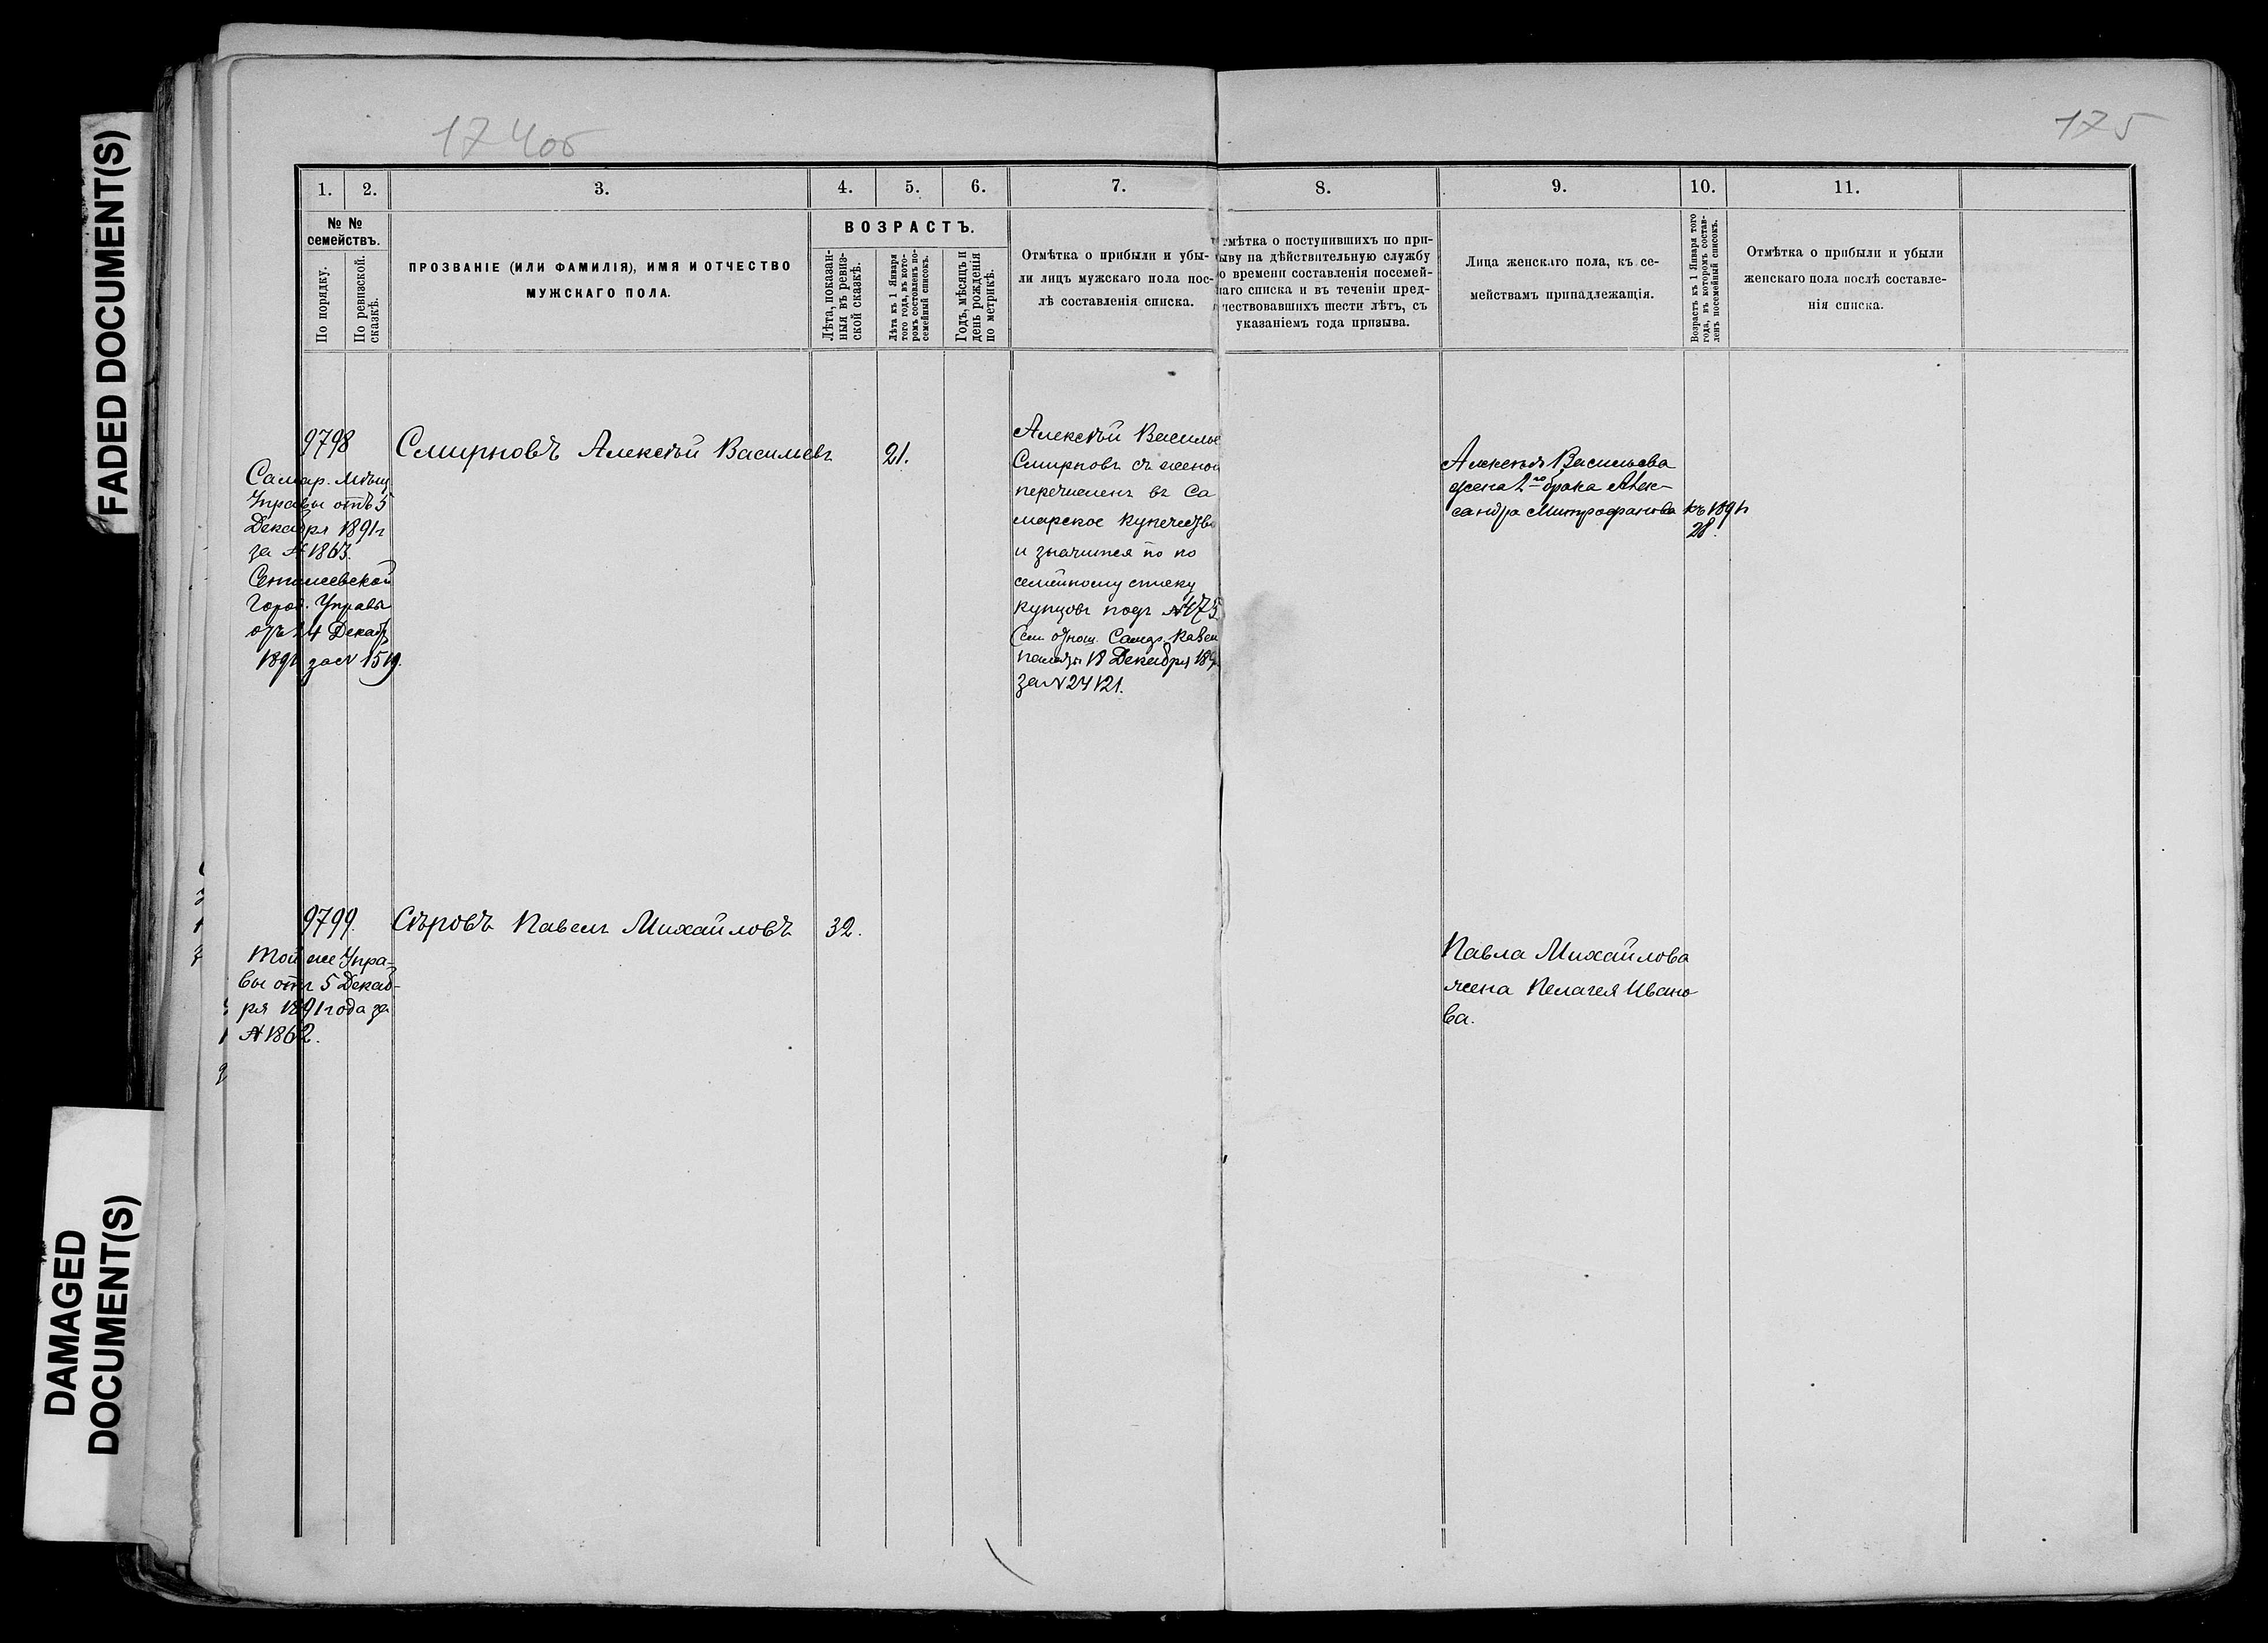 FADED DOCUMENT(S)
DAMAGED
DOCUMENT(S)
174об
175
1.
2.
3.
4.
5.
6.
7.
8.
9.
10.
11.
№ №
семействъ.
По порядку.
По ревизской
сказкѣ.
ПРОЗВАНІЕ (ИЛИ ФАМИЛІЯ), ИМЯ И ОТЧЕСТВО
МУЖСКАГО ПОЛА.
ВОЗРАСТЪ.
Лѣта, показан-
ныя въ ревиз-
ской сказкѣ.
Лѣта къ 1 Января
того года, въ кото-
ромъ составленъ по-
семейный списокъ.
Годъ, мѣсяцъ и
день рожденія
по метрикѣ.
Отмѣтка о прибыли и убы-
ли лицъ мужскаго пола пос-
лѣ составленія списка.
тмѣтка о поступившихъ по при-
ыву на дѣйствительную службу
о времени составленія посемей-
наго списка и въ теченіи пред-
чествовавшихъ шести лѣтъ, съ
указаніемъ года призыва.
Лица женскаго пола, къ се-
мействамъ принадлежащія.
Возрастъ къ 1 Января того
года, въ которомъ состав-
ленъ посемейный списокъ.
Отмѣтка о прибыли и убыли
женскаго пола послѣ составле-
нія списка.
9798
Самар. Мѣщ
Управы отъ 5
Декабря 1891 г
за № 1863.
Город. Управы
отъ 24 Декаб
1891 за № 1519.
Смирновъ Алексѣй Васильевъ
21.
Алексѣй Василье
Смирновъ съ женой
перечисленъ въ Са
марское купечество
и значится по по
семейному списку
купцовъ подъ № 475
См. отнош. Самар. Казен
палаты 18 Декабря 189
за № 24121.
Алексѣя Васильева
жена 2го брака Алек-
сандра Митрофанова
къ 1891 г
28.
9799.
Той же Упра-
вы отъ 5 Декаб-
ря 1891 года за
№ 1862.
Сѣровъ Павелъ Михайловъ
32.
Павла Михайлова
жена Пелагея Ивано
ва.